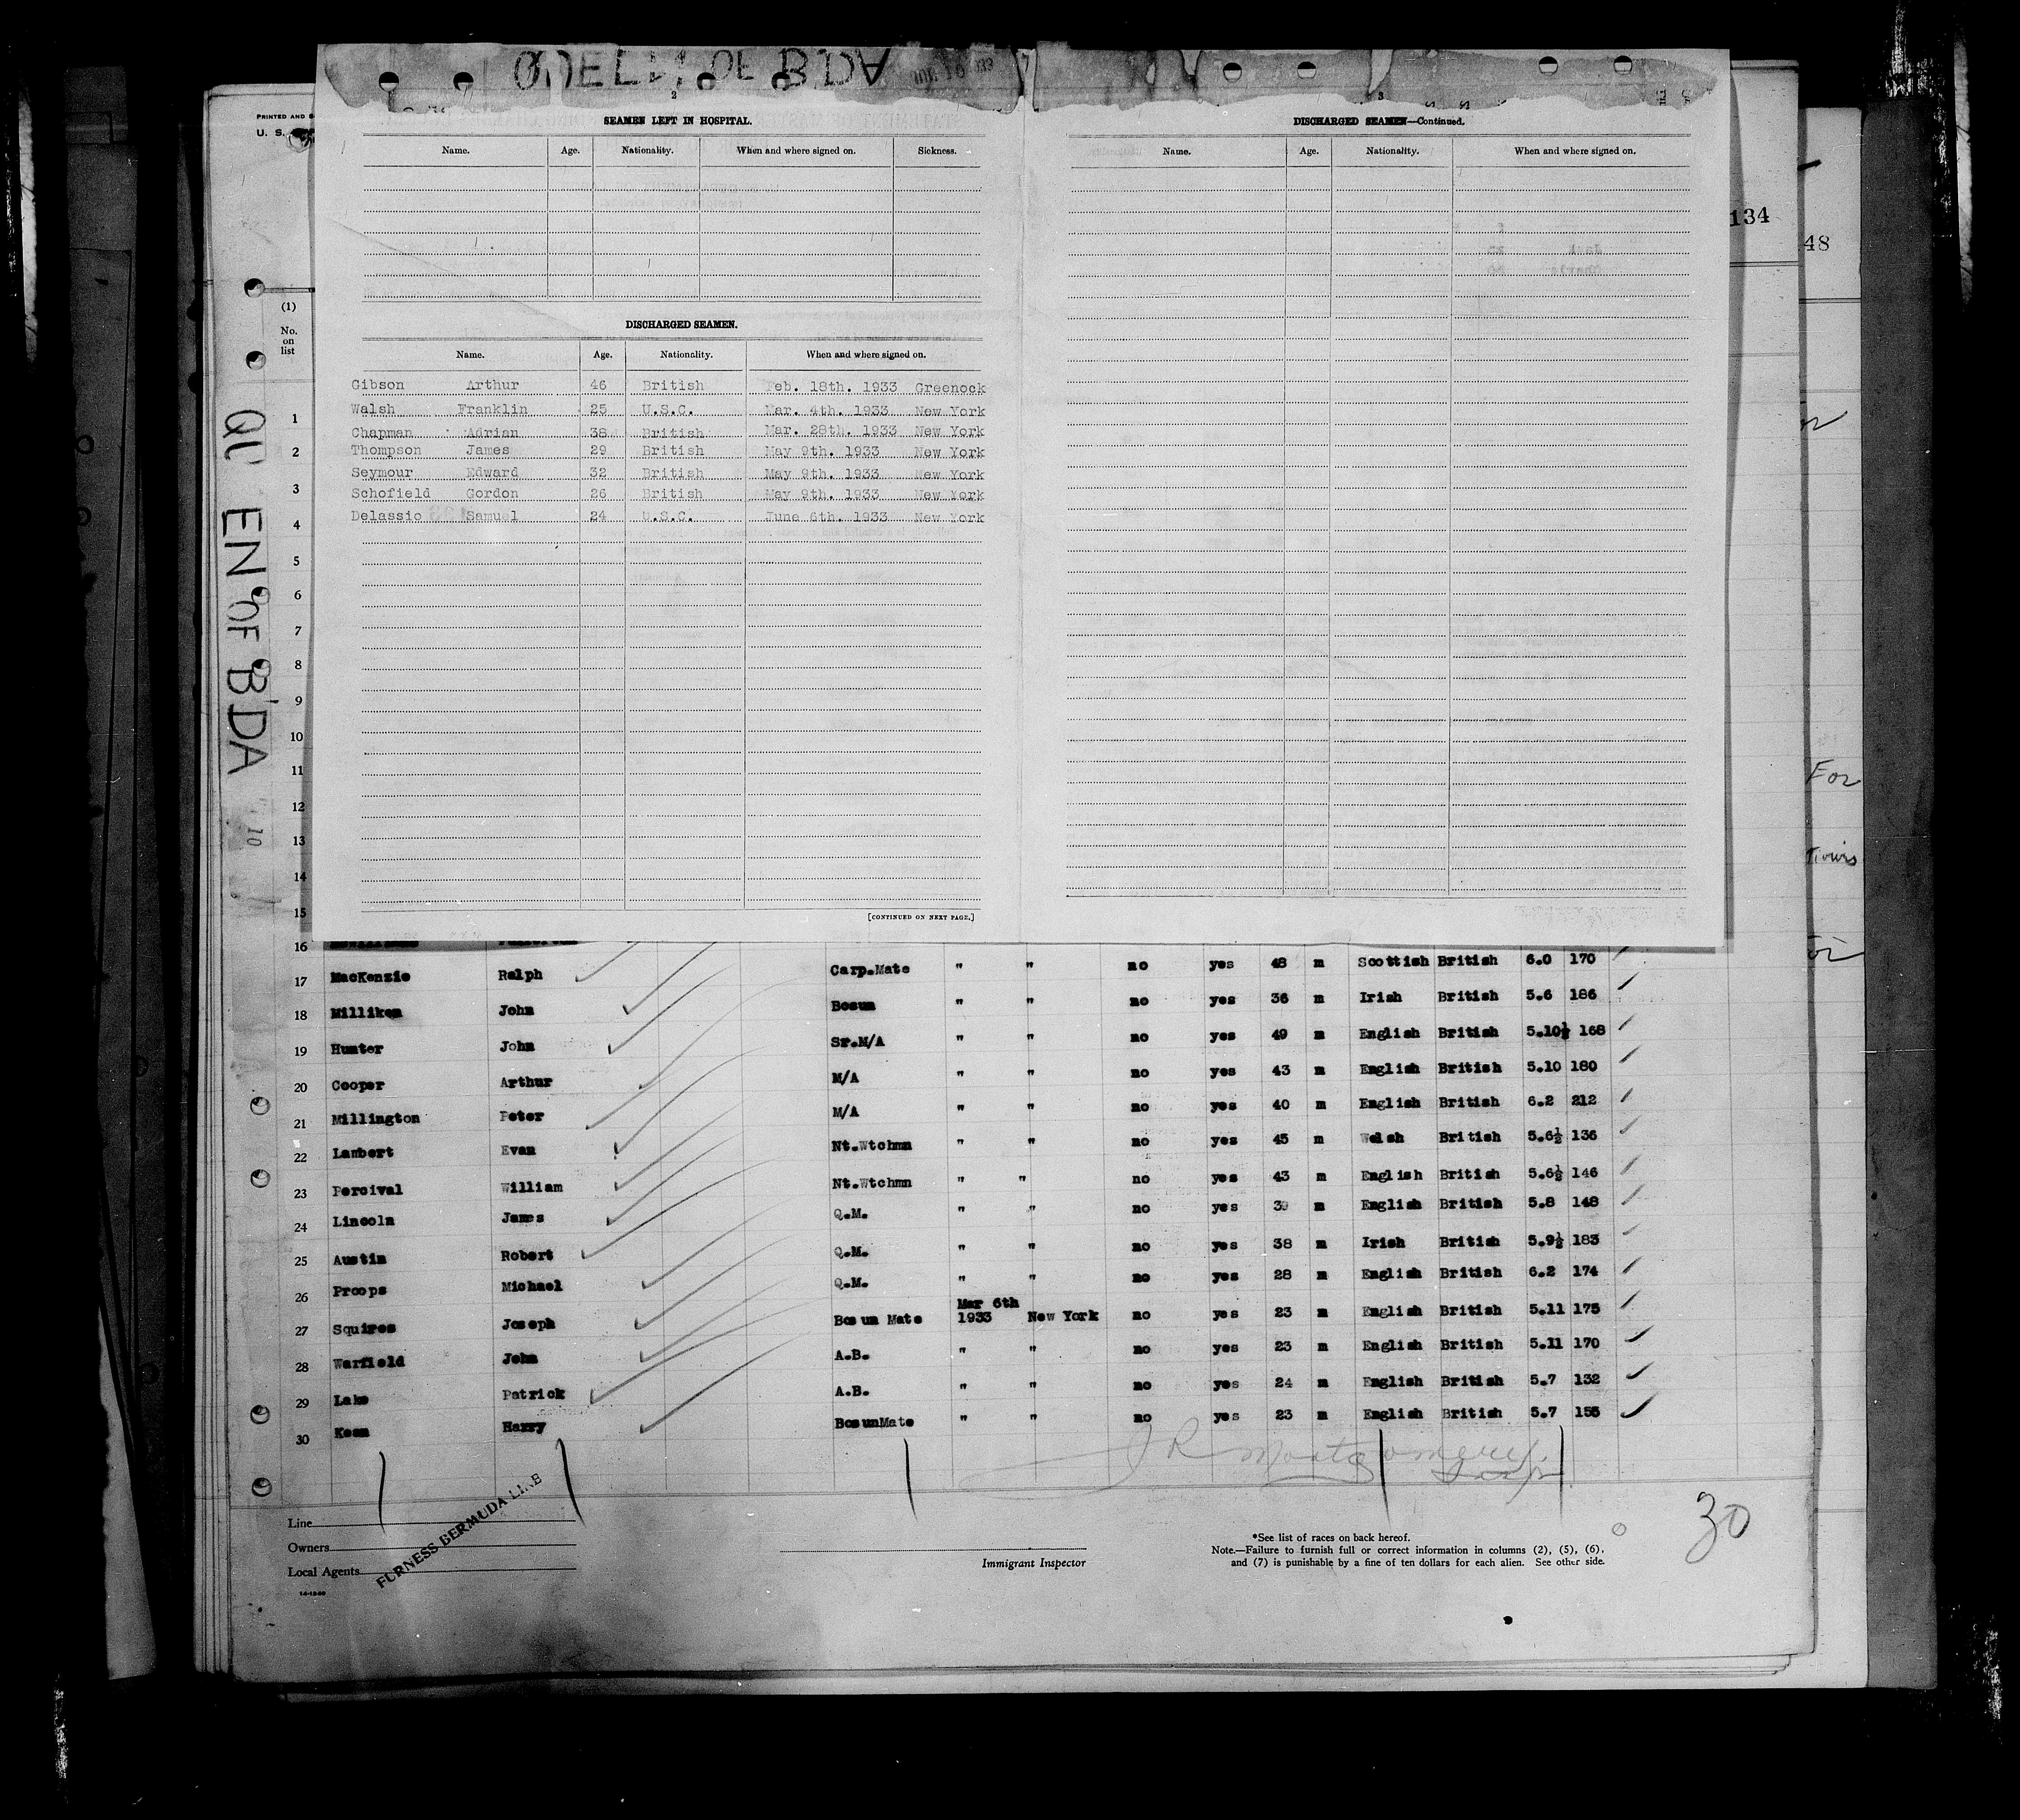 OF B'DA
2
SEAMEN LEFT IN HOSPITAL.
Name. Age. Nationality. When and where signed on. Sickness.
DISCHARGED SEAMEN.
Name. Age. Nationality. When and where signed on.
Gibson Arthur 46 British Feb. 18th. 1933 Greenock
Walsh Franklin 25 U.S.C. Mar. 4th. 1933 New York
Chapman Adrian 38 British Mar. 28th. 1933 New York
Thompson James 29 British May 9th. 1933 New York
Seymour Edward 32 British May 9th. 1933 New York
Schofield Gordon 26 British May 9th. 1933 New York
Delassio Samuel 24 U.S.C. June 6th. 1933 New York
[CONTINUED ON NEXT PAGE.]
3
DISCHARGED SEAMEN—Continued.
Name. Age. Nationality. When and where signed on.
PRINTED AND
U. S.
134
48
(1)
No.
on
list
EN OF B'DA
10
1
2
3
4
5
6
7
8
9
10
11
12
13
14
15
16
For
17 MacKenzie Ralph Carp.Mate " " no yes 48 m Scottish British 6.0 170
18 Milliken John Bosun " " no yes 36 m Irish British 5.6 186
19 Hunter John Sr.M/A " " no yes 49 m English British 5.10½ 168
20 Cooper Arthur M/A " " no yes 43 m English British 5.10 180
21 Millington Peter M/A " " no yes 40 m English British 6.2 212
22 Lambert Evan Nt.Wtchmn " " no yes 45 m Welsh British 5.6½ 136
23 Percival William Nt.Wtchmn " " no yes 43 m English British 5.6½ 146
24 Lincoln James Q.M. " " no yes 39 m English British 5.8 148
25 Austin Robert Q.M. " " no yes 38 m Irish British 5.9½ 183
26 Proops Michael Q.M. " " no yes 28 m English British 6.2 174
27 Squires Joseph Bosun Mate Mar 6th 1933 New York no yes 23 m English British 5.11 175
28 Warfield John A.B. " " no yes 23 m English British 5.11 170
29 Lake Patrick A.B. " " no yes 24 m English British 5.7 132
30 Keen Harry BosunMate " " no yes 23 m English British 5.7 155
J R Montgomery
Insp.
Line
Owners
Local Agents
FURNESS BERMUDA LINE
14-1240
Immigrant Inspector
*See list of races on back hereof.
Note.—Failure to furnish full or correct information in columns (2), (5), (6),
and (7) is punishable by a fine of ten dollars for each alien. See other side.
30